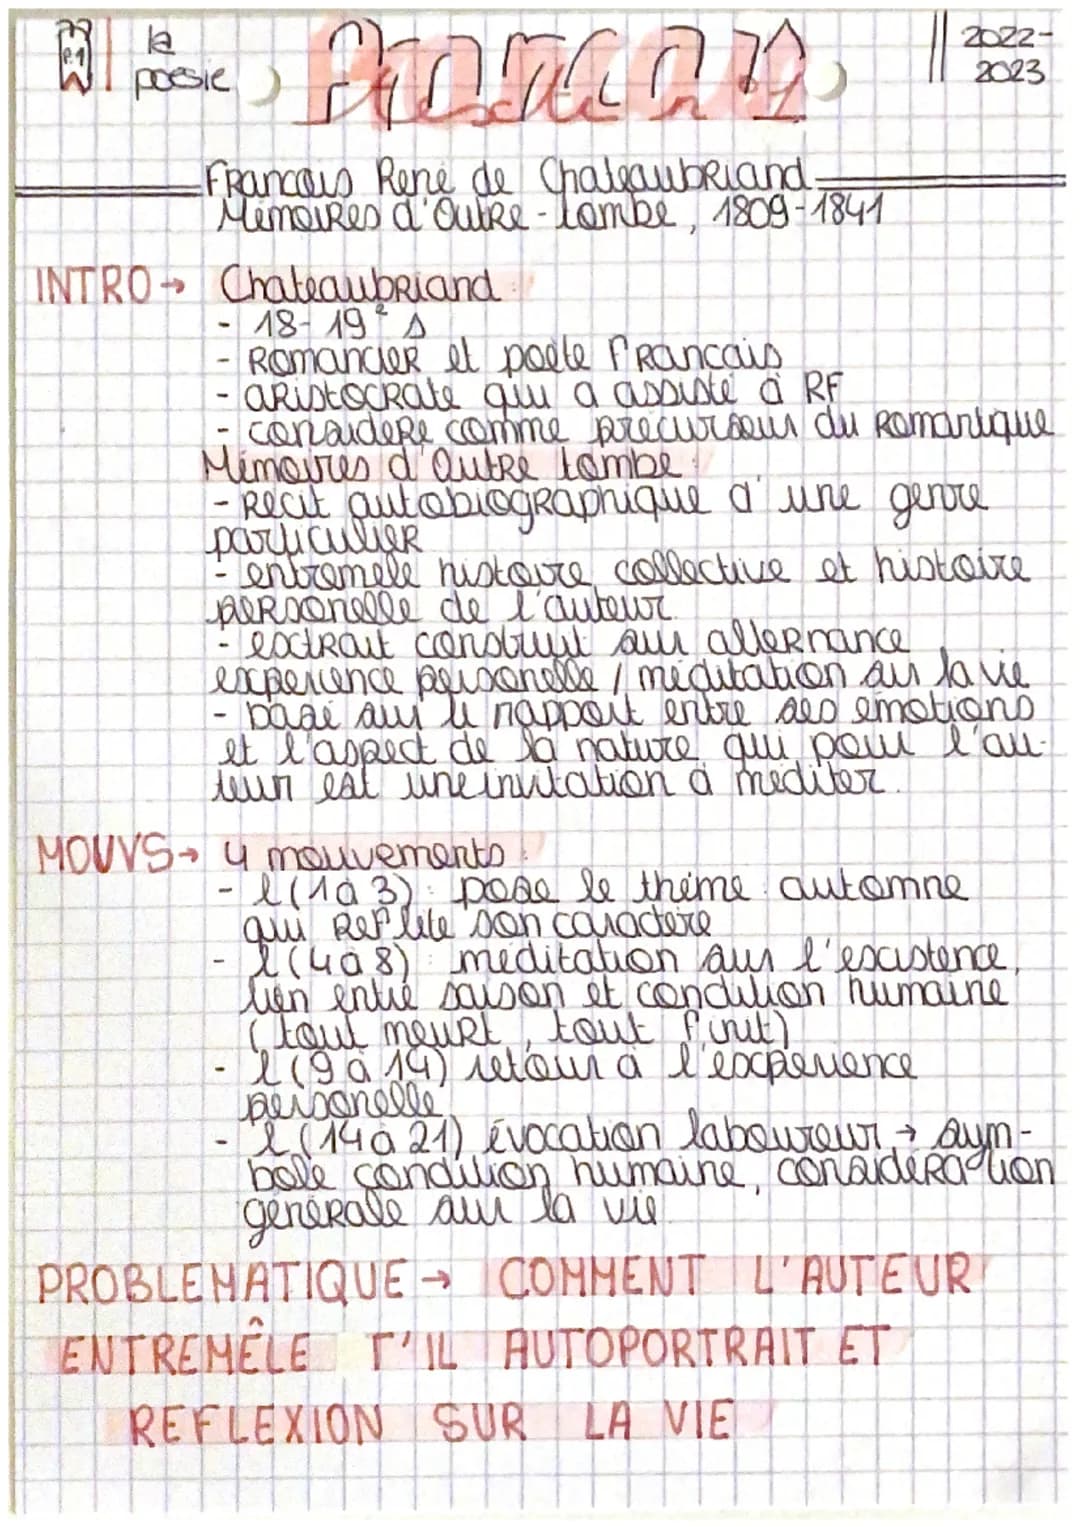 P.1
la
poesie
Français
Texte 1
2022-
2023
François René de Chateaubriand
Mémoires d'Outre-tombe, 1809-1841
INTRO → Chateaubriand :
- 18-19e s
- Romancier et poète Français
- aristocrate qui a assisté à RF
- considéré comme précurseur du Romantique
Mémoires d'Outre tombe :
- Récit autobiographique d'une genre
particulier
- entremele histoire collective et histoire
personelle de l'auteur
- extrait construit sur alternance
experience personelle / méditation sur la vie
- basé sur le rapport entre ses émotions
et l'aspect de la nature qui pour l'au-
teur est une invitation à méditer.
MOUVS → 4 mouvements :
- l (1 à 3) : pose le thème automne
qui Reflète son caractère
- l (4 à 8) : méditation sur l'existence,
lien entre saison et condition humaine
(tout meurt, tout finit)
- l (9 à 14) retour à l'expérience
personelle
- l (14 à 21) évocation laboureur → sym-
bole condition humaine, considération
générale sur la vie
PROBLEMATIQUE → COMMENT L'AUTEUR
ENTREMÊLE T'IL AUTOPORTRAIT ET
REFLEXION SUR LA VIE